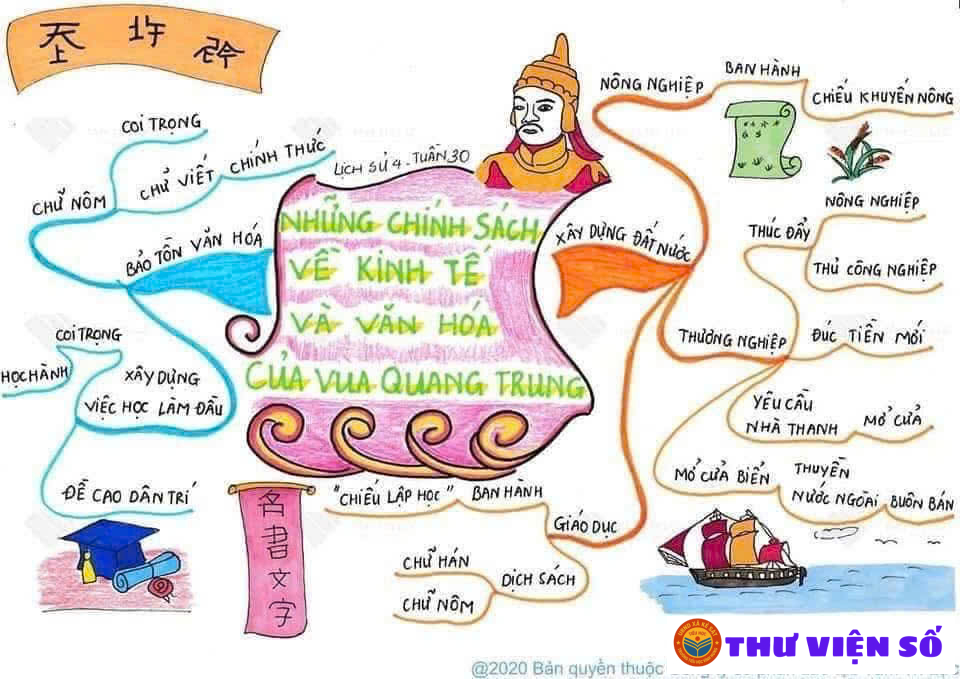 COI TRỌNG
CHỮ VIẾT CHÍNH THỨC
CHỮ NÔM
BẢO TỒN VĂN HÓA
COI TRỌNG
HỌC HÀNH
XÂY DỰNG
VIỆC HỌC LÀM ĐẦU
ĐỀ CAO DÂN TRÍ
LỊCH SỬ 4 - TUẦN 30
NHỮNG CHÍNH SÁCH
VỀ KINH TẾ
VÀ VĂN HÓA
CỦA VUA QUANG TRUNG
名書文字
NÔNG NGHIỆP
BAN HÀNH
CHIẾU KHUYẾN NÔNG
XÂY DỰNG ĐẤT NƯỚC
THƯƠNG NGHIỆP
THÚC ĐẨY
NÔNG NGHIỆP
THỦ CÔNG NGHIỆP
ĐÚC TIỀN MỚI
YÊU CẦU
NHÀ THANH
MỞ CỬA
MỞ CỬA BIỂN
THUYỀN
NƯỚC NGOÀI BUÔN BÁN
GIÁO DỤC
BAN HÀNH
"CHIẾU LẬP HỌC"
DỊCH SÁCH
CHỮ HÁN
CHỮ NÔM
THƯ VIỆN SỐ
@2020 Bản quyền thuộc